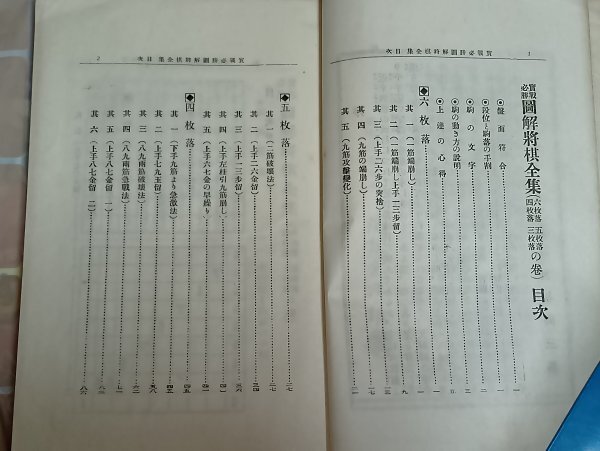 實戰必勝圖解將棋全集 目次
1
實戰必勝 圖解將棋全集（六枚落 五枚落 四枚落 三枚落の卷）目次
◉盤面符合……一
◉段位と駒落の手割……一
◉駒の文字……二
◉駒の動き方の說明……三
◉上達の心得……五
◆六枚落……
其一（一筋端崩し）……九
其二（一筋端崩し上手一二步留）……
其三（上手二六步の突捨）……一三
其四（九筋の端崩し）……一七
其五（九筋攻擊變化）……二一
2
實戰必勝圖解將棋全集 目次
◆五枚落……二七
其一（二筋破壞法）……二七
其二（上手二六金留）……三四
其三（上手一三步留）……三六
其四（上手左桂引九筋崩し）……四一
其五（上手六七金の早繰り）……四二
◆四枚落……四五
其一（下手九筋より急激法）……四五
其二（上手七九玉留）……五八
其三（八九兩筋破壞法）……六二
其四（八九兩筋急戰法）……七一
其五（上手八七金留 一）……八二
其六（上手八七金留 二）……八六